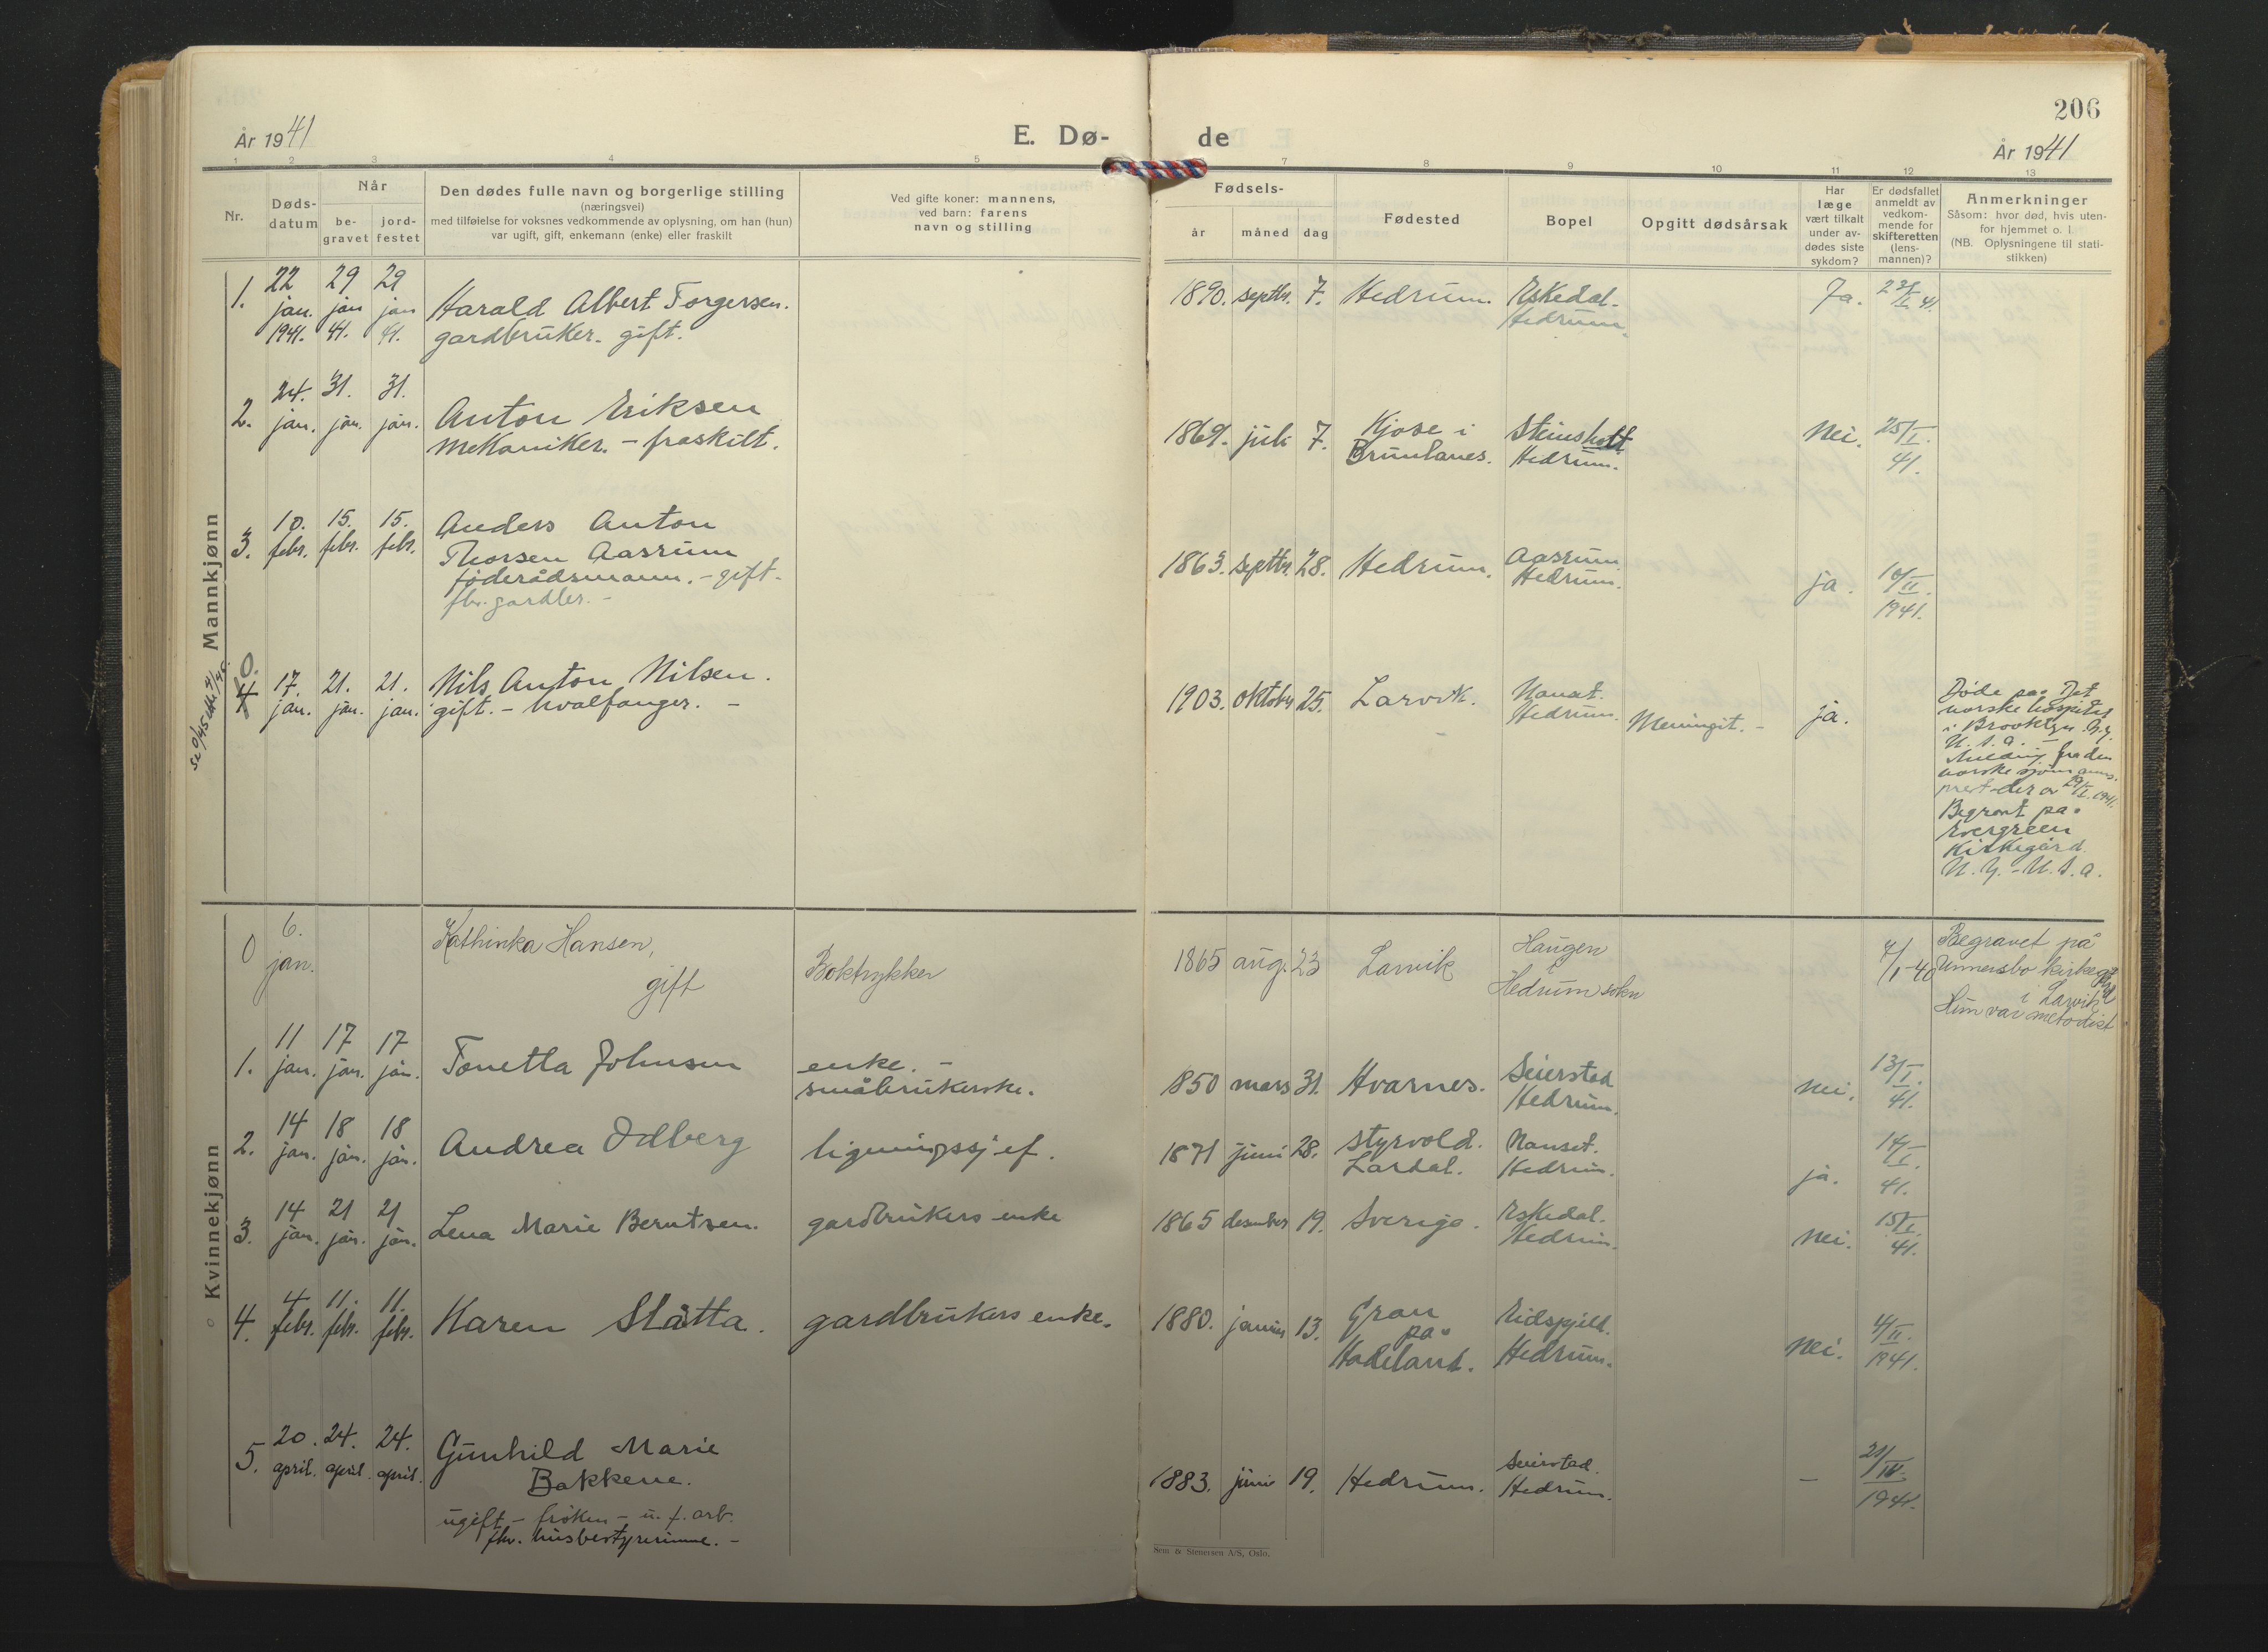 206
År 1941
E. Dø-
de
År 1941
1 2 3 4 5 7 8 9 10 11 12 13
Nr.
Døds-
datum
Når
be-
gravet
jord-
festet
Den dødes fulle navn og borgerlige stilling
(næringsvei)
med tilføielse for voksnes vedkommende av oplysning, om han (hun)
var ugift, gift, enkemann (enke) eller fraskilt
Ved gifte koner: mannens,
ved barn: farens
navn og stilling
Fødsels-
år måned dag
Fødested
Bopel
Opgitt dødsårsak
Har
læge
vært tilkalt
under av-
dødes siste
sykdom?
Er dødsfallet
anmeldt av
vedkom-
mende for
skifteretten
(lens-
mannen)?
Anmerkninger
Såsom: hvor død, hvis uten-
for hjemmet o. l.
(NB. Oplysningene til stati-
stikken)
Mannkjønn
1. 22 jan. 1941. 29 jan 41. 29 jan 41.
Harald Albert Torgersen.
gardbruker. gift.
1890. septbr. 7. Hedrum.
Eskedal.
Hedrum.
Ja.
23/I 41.
2. 24. jan. 31. jan. 31. jan.
Anton Eriksen
mekaniker. – fraskilt.
1869. juli 7.
Kjose i
Brunlanes.
Steinsholt
Hedrum.
Nei.
25/I.
41.
3. 10. febr. 15. febr. 15. febr.
Anders Anton
Thorsen Aasrum
föderådsmann. – gift.
fhv. gardbr. –
1863. septbr. 28. Hedrum.
Aasrum.
Hedrum.
ja.
10/II
1941.
4 10. 17. jan. 21. jan. 21. jan.
Nils Anton Nilsen.
gift. – hvalfanger. –
1903. oktober 25. Larvik.
Nanset.
Hedrum.
Meningit. –
ja.
Døde på Det
norske hospital
i Brooklyn N.Y.
U.S.A. –
Melding fra den
norske sjømanns-
prest der av 29/I. 1941.
Begravet på
Evergreen
Kirkegård
N.Y. – U.S.A.
Kvinnekjønn
0 6. jan.
Kathinka Hansen,
gift
Boktrykker
1865 aug. 23 Larvik
Haugen
i
Hedrum sokn
7/1-40
Begravet på
Unnersbo kirkegård
i Larvik
Hun var metodist
1. 11 jan. 17 jan. 17 jan.
Tonetta Johnsen
enke. –
småbrukerske.
1850 mars 31. Hvarnes.
Seierstad
Hedrum.
nei.
13/I.
41.
2. 14 jan. 18 jan. 18 jan.
Andrea Odberg
ligningssjef.
1871 juni 28.
Styrvold.
Lardal.
Nanset.
Hedrum.
ja.
14/I.
41.
3. 14 jan. 21 jan. 21 jan.
Lena Marie Berntsen.
gardbrukers enke
1865 desember 19. Sverige.
Eskedal.
Hedrum.
Nei.
15/I
41.
4. 4 febr. 11. febr. 11. febr.
Karen Slåtta.
gardbrukers enke.
1880. januar 13.
Gran
på
Hadeland.
Eidsfjeld.
Hedrum.
Nei.
4/II.
1941.
5. 20. april. 24. april. 24. april.
Gunhild Marie
Bakkene.
ugift – frøken – u. f. arb.
fhv. husbestyrerinne. –
1883. juni 19. Hedrum.
Seierstad.
Hedrum.
–
21/IV.
1941.
Sem & Stenersen A/S, Oslo.